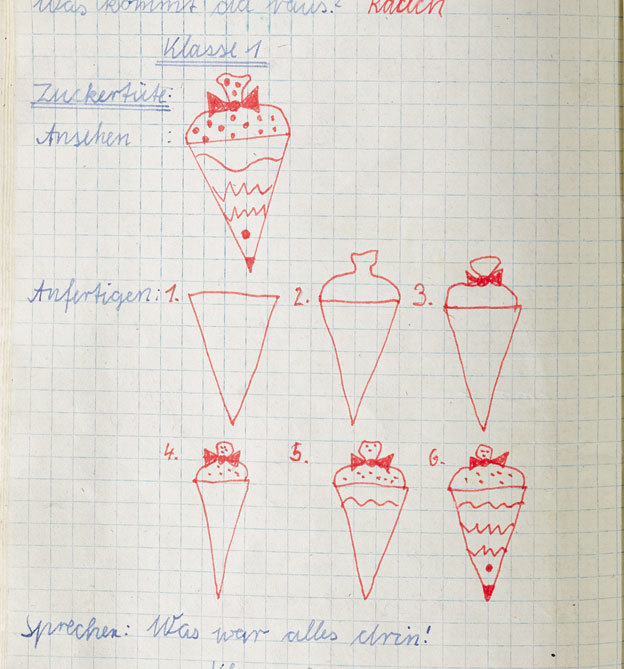 Was kommt da raus?
Klasse 1
Zuckertüte:
Ansehen :
Anfertigen: 1. 2. 3.
4. 5. 6.
Sprechen: Was war alles drin!